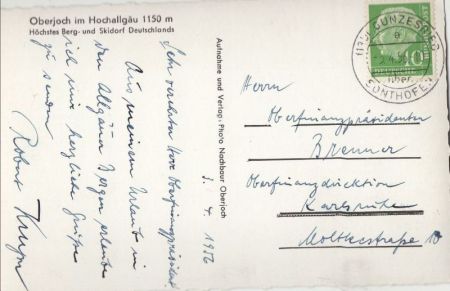 Oberjoch im Hochallgäu 1150 m
Höchstes Berg- und Skidorf Deutschlands
3. 4. 1956
Sehr verehrter Herr Oberfinanzpräsident
Aus meinem Urlaub in
den Allgäuer Bergen erlaube
ich mir herzliche Grüße
zu senden
Robert
Aufnahme und Verlag: Photo Nachbaur Oberjoch
10
a
über
SONTHOFEN
Herrn
Oberfinanzpräsidenten
Brenner
Oberfinanzdirektion
Karlsruhe
Moltkestraße 10